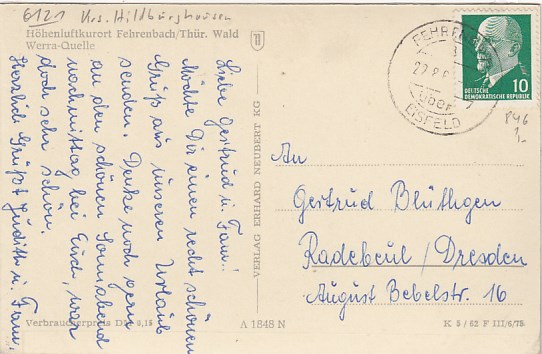 6121 Krs. Hildburghausen
Höhenluftkurort Fehrenbach/Thür. Wald
Werra-Quelle
Liebe Gertrud u. Fam.!
Möchte Dir einen recht schönen
Gruß aus unseren Urlaub
senden. Denke noch gern
an den schönen Sonnabend
nachmittag bei Euch, war
doch sehr schön.
Herzlich Grüßt Judith u. Fam.
VERLAG ERHARD NEUBERT KG
FEHREN
22.8.6
über
EISFELD
10
DEUTSCHE
DEMOKRATISCHE REPUBLIK
P46
1,-
An
Gertrud Blüthgen
Radebeul / Dresden
August Bebelstr. 16
Verbraucherpreis DM 0,15
A 1848 N
K 5/62 F III/6/75